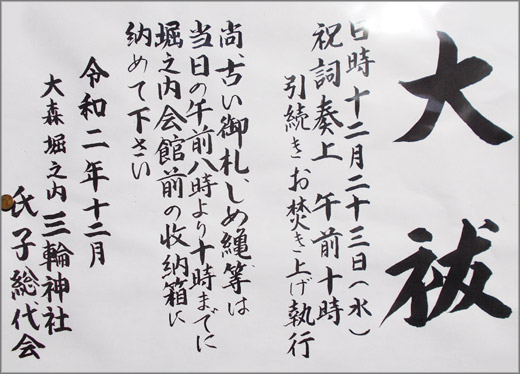 大祓
日時十二月二十三日(水)
祝詞奏上 午前十時
引続きお焚き上げ執行
尚、古い御札、しめ縄等は
当日の午前八時より十時までに
堀之内会館前の収納箱に
納めて下さい
令和二年十二月
大森堀之内三輪神社
氏子総代会